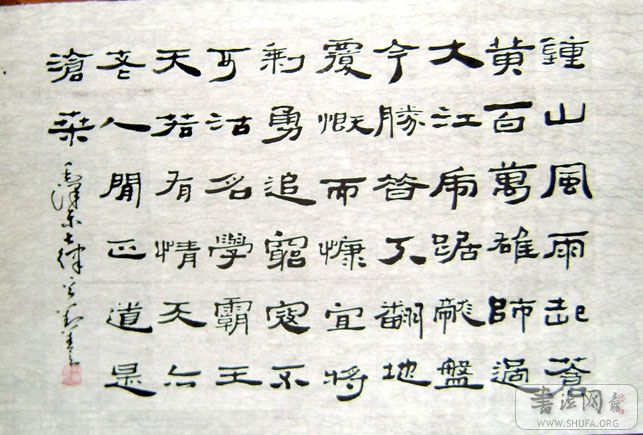 鍾山風雨起蒼
黄百萬雄師過
大江虎踞龍盤
今勝昔天翻地
覆慨而慷宜將
剩勇追窮寇不
可沽名學霸王
天若有情天亦
老人間正道是
滄桑
毛澤东七律
書法网
WWW.SHUFA.ORG